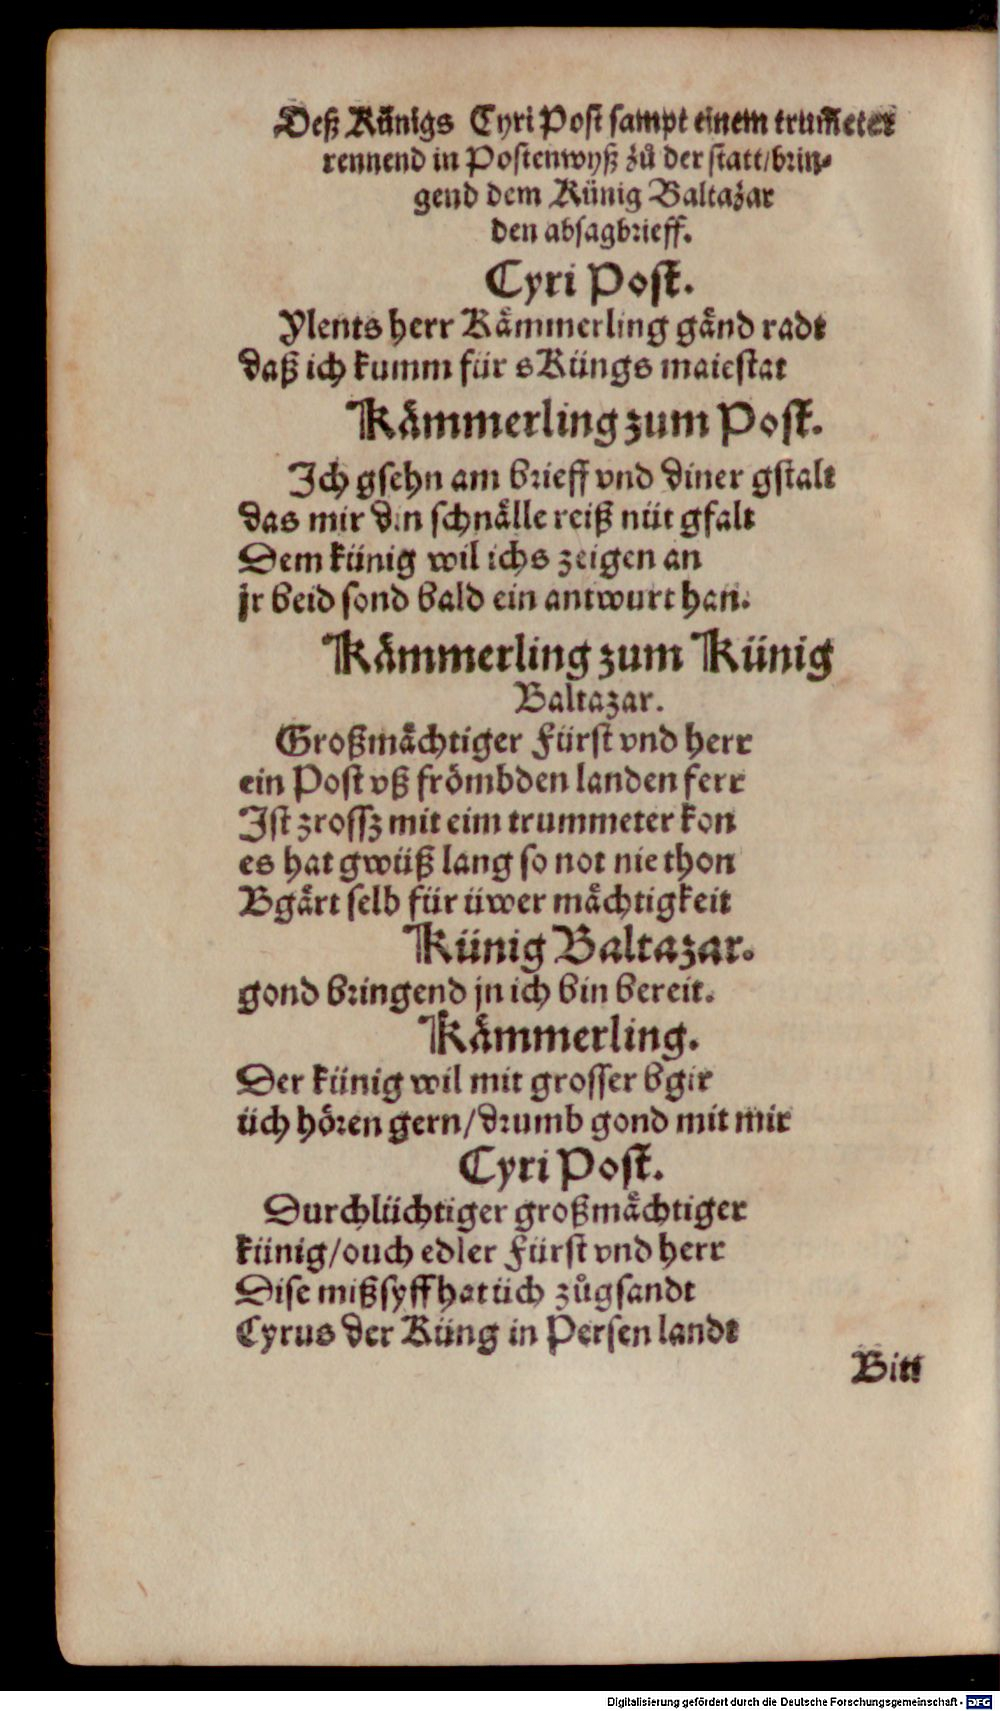 Deß Künigs Cyri Post sampt einem trum̃eter
rennend in Postenwyß zů der statt/ brin-
gend dem Künig Baltazar
den absagbrieff.
Cyri Post.
Ylents herr Kämmerling gänd radt
daß ich kumm für sKüngs maiestat
Kämmerling zum Post.
Ich gsehn am brieff vnd diner gstalt
das mir din schnälle reiß nüt gfalt
Dem künig wil ichs zeigen an
jr beid sond bald ein antwurt han.
Kämmerling zum Künig
Baltazar.
Großmächtiger Fürst vnd herr
ein Post vß frömbden landen ferr
Ist zrossz mit eim trummeter kon
es hat gwüß lang so not nie thon
Bgärt selb für üwer mächtigkeit
Künig Baltazar.
gond bringend jn ich bin bereit.
Kämmerling.
Der künig wil mit grosser bgir
üch hören gern/ drumb gond mit mir
Cyri Post.
Durchlüchtiger großmächtiger
künig/ ouch edler Fürst vnd herr
Dise mißsyff hat üch zůgsandt
Cyrus der Küng in Persen landt
Bitt
Digitalisierung gefördert durch die Deutsche Forschungsgemeinschaft - DFG